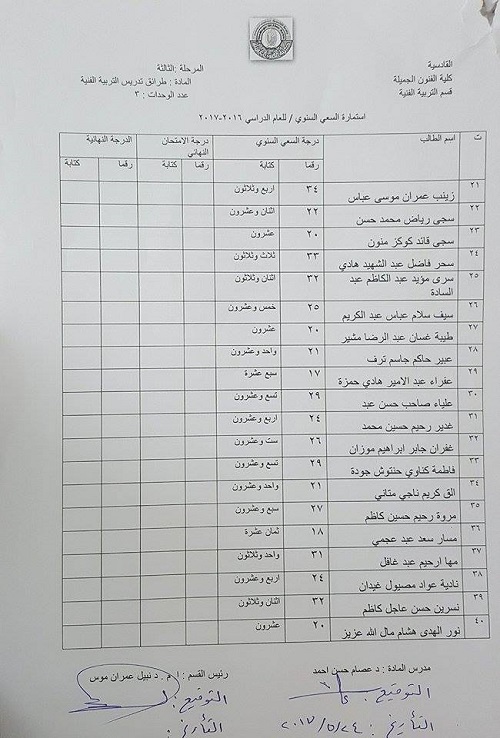 القادسية
كلية الفنون الجميلة
قسم التربية الفنية
المرحلة :الثالثة
المادة : طرائق تدريس التربية الفنية
عدد الوحدات : ٣
استمارة السعي السنوي / للعام الدراسي ٢٠١٦-٢٠١٧
ت اسم الطالب درجة السعي السنوي درجة الامتحان النهائي الدرجة النهائية
رقما كتابة رقما كتابة رقما كتابة
٢١ زينب عمران موسى عباس ٣٤ اربع وثلاثون
٢٢ سجى رياض محمد حسن ٢٢ اثنان وعشرون
٢٣ سجى قائد كوكز منون ٢٠ عشرون
٢٤ سحر فاضل عبد الشهيد هادي ٣٣ ثلاث وثلاثون
٢٥ سرى مؤيد عبد الكاظم عبد السادة ٣٢ اثنان وثلاثون
٢٦ سيف سلام عباس عبد الكريم ٢٥ خمس وعشرون
٢٧ طيبة غسان عبد الرضا مشير ٢٠ عشرون
٢٨ عبير حاكم جاسم ترف ٢١ واحد وعشرون
٢٩ عفراء عبد الامير هادي حمزة ١٧ سبع عشرة
٣٠ علياء صاحب حسن عبد ٢٩ تسع وعشرون
٣١ غدير رحيم حسين محمد ٢٤ اربع وعشرون
٣٢ غفران جابر ابراهيم موزان ٢٦ ست وعشرون
٣٣ فاطمة كناوي حنتوش جودة ٢٩ تسع وعشرون
٣٤ الق كريم ناجي متاني ٢١ واحد وعشرون
٣٥ مروة رحيم حسين كاظم ٢٧ سبع وعشرون
٣٦ مسار سعد عبد عجمي ١٨ ثمان عشرة
٣٧ مها ارحيم عبد غافل ٣١ واحد وثلاثون
٣٨ نادية عواد مصيول غيدان ٢٤ اربع وعشرون
٣٩ نسرين حسن عاجل كاظم ٣٢ اثنان وثلاثون
٤٠ نور الهدى هشام مال الله عزيز ٢٠ عشرون
مدرس المادة : د عصام حسن احمد
رئيس القسم : ا . م . د نبيل عمران موس
التوقيع :
التوقيع :
التأريخ : ٢٠١٧/٥/٢٤
التأريخ :